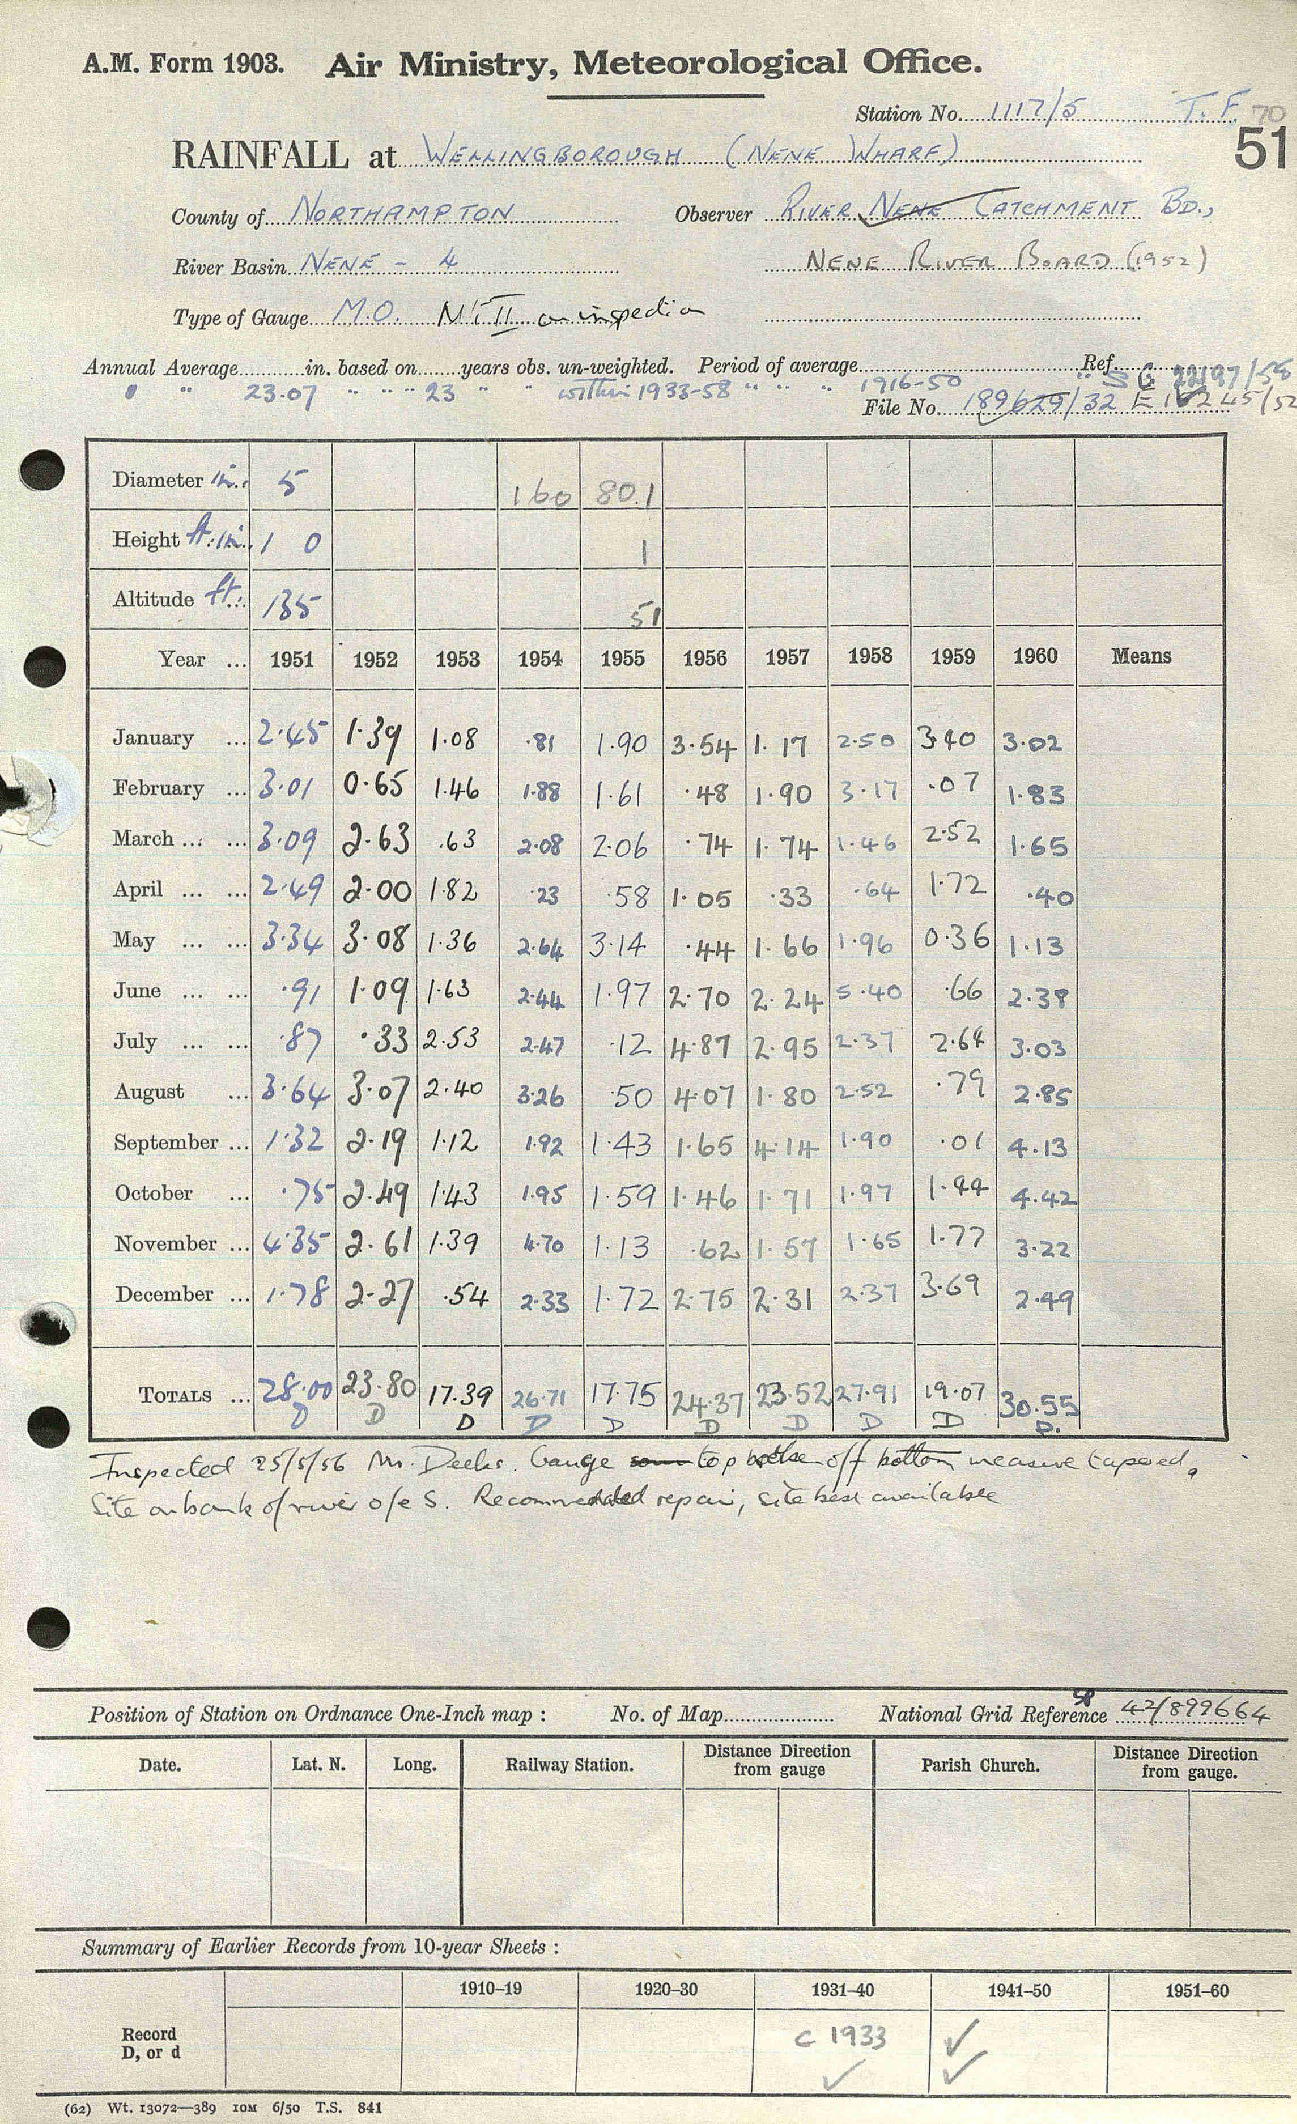 A.M. Form 1903. Air Ministry, Meteorological Office.
Station No. 1117/5 T.F. 70
RAINFALL at WELLINGBOROUGH (NENE WHARF) 51
County of NORTHAMPTON Observer RIVER NENE CATCHMENT BD.,
River Basin NENE - 4 NENE RIVER BOARD (1952)
Type of Gauge M.O. Mk II on inspection
Annual Average in. based on years obs. un-weighted. Period of average Ref.
" " 23.07 " " " 23 " " within 1933-58 " " " 1916-50
File No. 189629/32
Diameter in. 5 160 80.1
Height ft. in. 1 0 1
Altitude ft. 135 51
Year ... 1951 1952 1953 1954 1955 1956 1957 1958 1959 1960 Means
January ... 2.45 1.39 1.08 .81 1.90 3.54 1.17 2.50 3.40 3.02
February ... 3.01 0.65 1.46 1.88 1.61 .48 1.90 3.17 .07 1.83
March ... ... 3.09 2.63 .63 2.08 2.06 .74 1.74 1.46 2.52 1.65
April ... ... 2.49 2.00 1.82 .23 .58 1.05 .33 .64 1.72 .40
May ... ... 3.34 3.08 1.36 2.64 3.14 .44 1.66 1.96 0.36 1.13
June ... ... .91 1.09 1.63 2.44 1.97 2.70 2.24 5.40 .66 2.38
July ... ... .87 .33 2.53 2.47 .12 4.87 2.95 2.37 2.64 3.03
August ... 3.64 3.07 2.40 3.26 .50 4.07 1.80 2.52 .79 2.85
September ... 1.32 2.19 1.12 1.92 1.43 1.65 4.14 1.90 .01 4.13
October ... .75 2.49 1.43 1.95 1.59 1.46 1.71 1.97 1.44 4.42
November ... 4.35 2.61 1.39 4.70 1.13 .62 1.57 1.65 1.77 3.22
December ... 1.78 2.27 .54 2.33 1.72 2.75 2.31 2.37 3.69 2.49
TOTALS ... 28.00 23.80 17.39 26.71 17.75 24.37 23.52 27.91 19.07 30.55
D D D D D D D D D D.
Inspected 25/5/56 Mr. Deeks. Gauge top off bottom measure tapered,
Site on bank of river o/e S. Recommended repair, site best available
Position of Station on Ordnance One-Inch map : No. of Map National Grid Reference 42/899664
SP
Date. Lat. N. Long. Railway Station. Distance Direction from gauge Parish Church. Distance Direction from gauge.
Summary of Earlier Records from 10-year Sheets :
1910–19 1920–30 1931–40 1941–50 1951–60
Record D, or d c 1933 ✓ ✓ ✓
(62) Wt. 13072—389 10M 6/50 T.S. 841